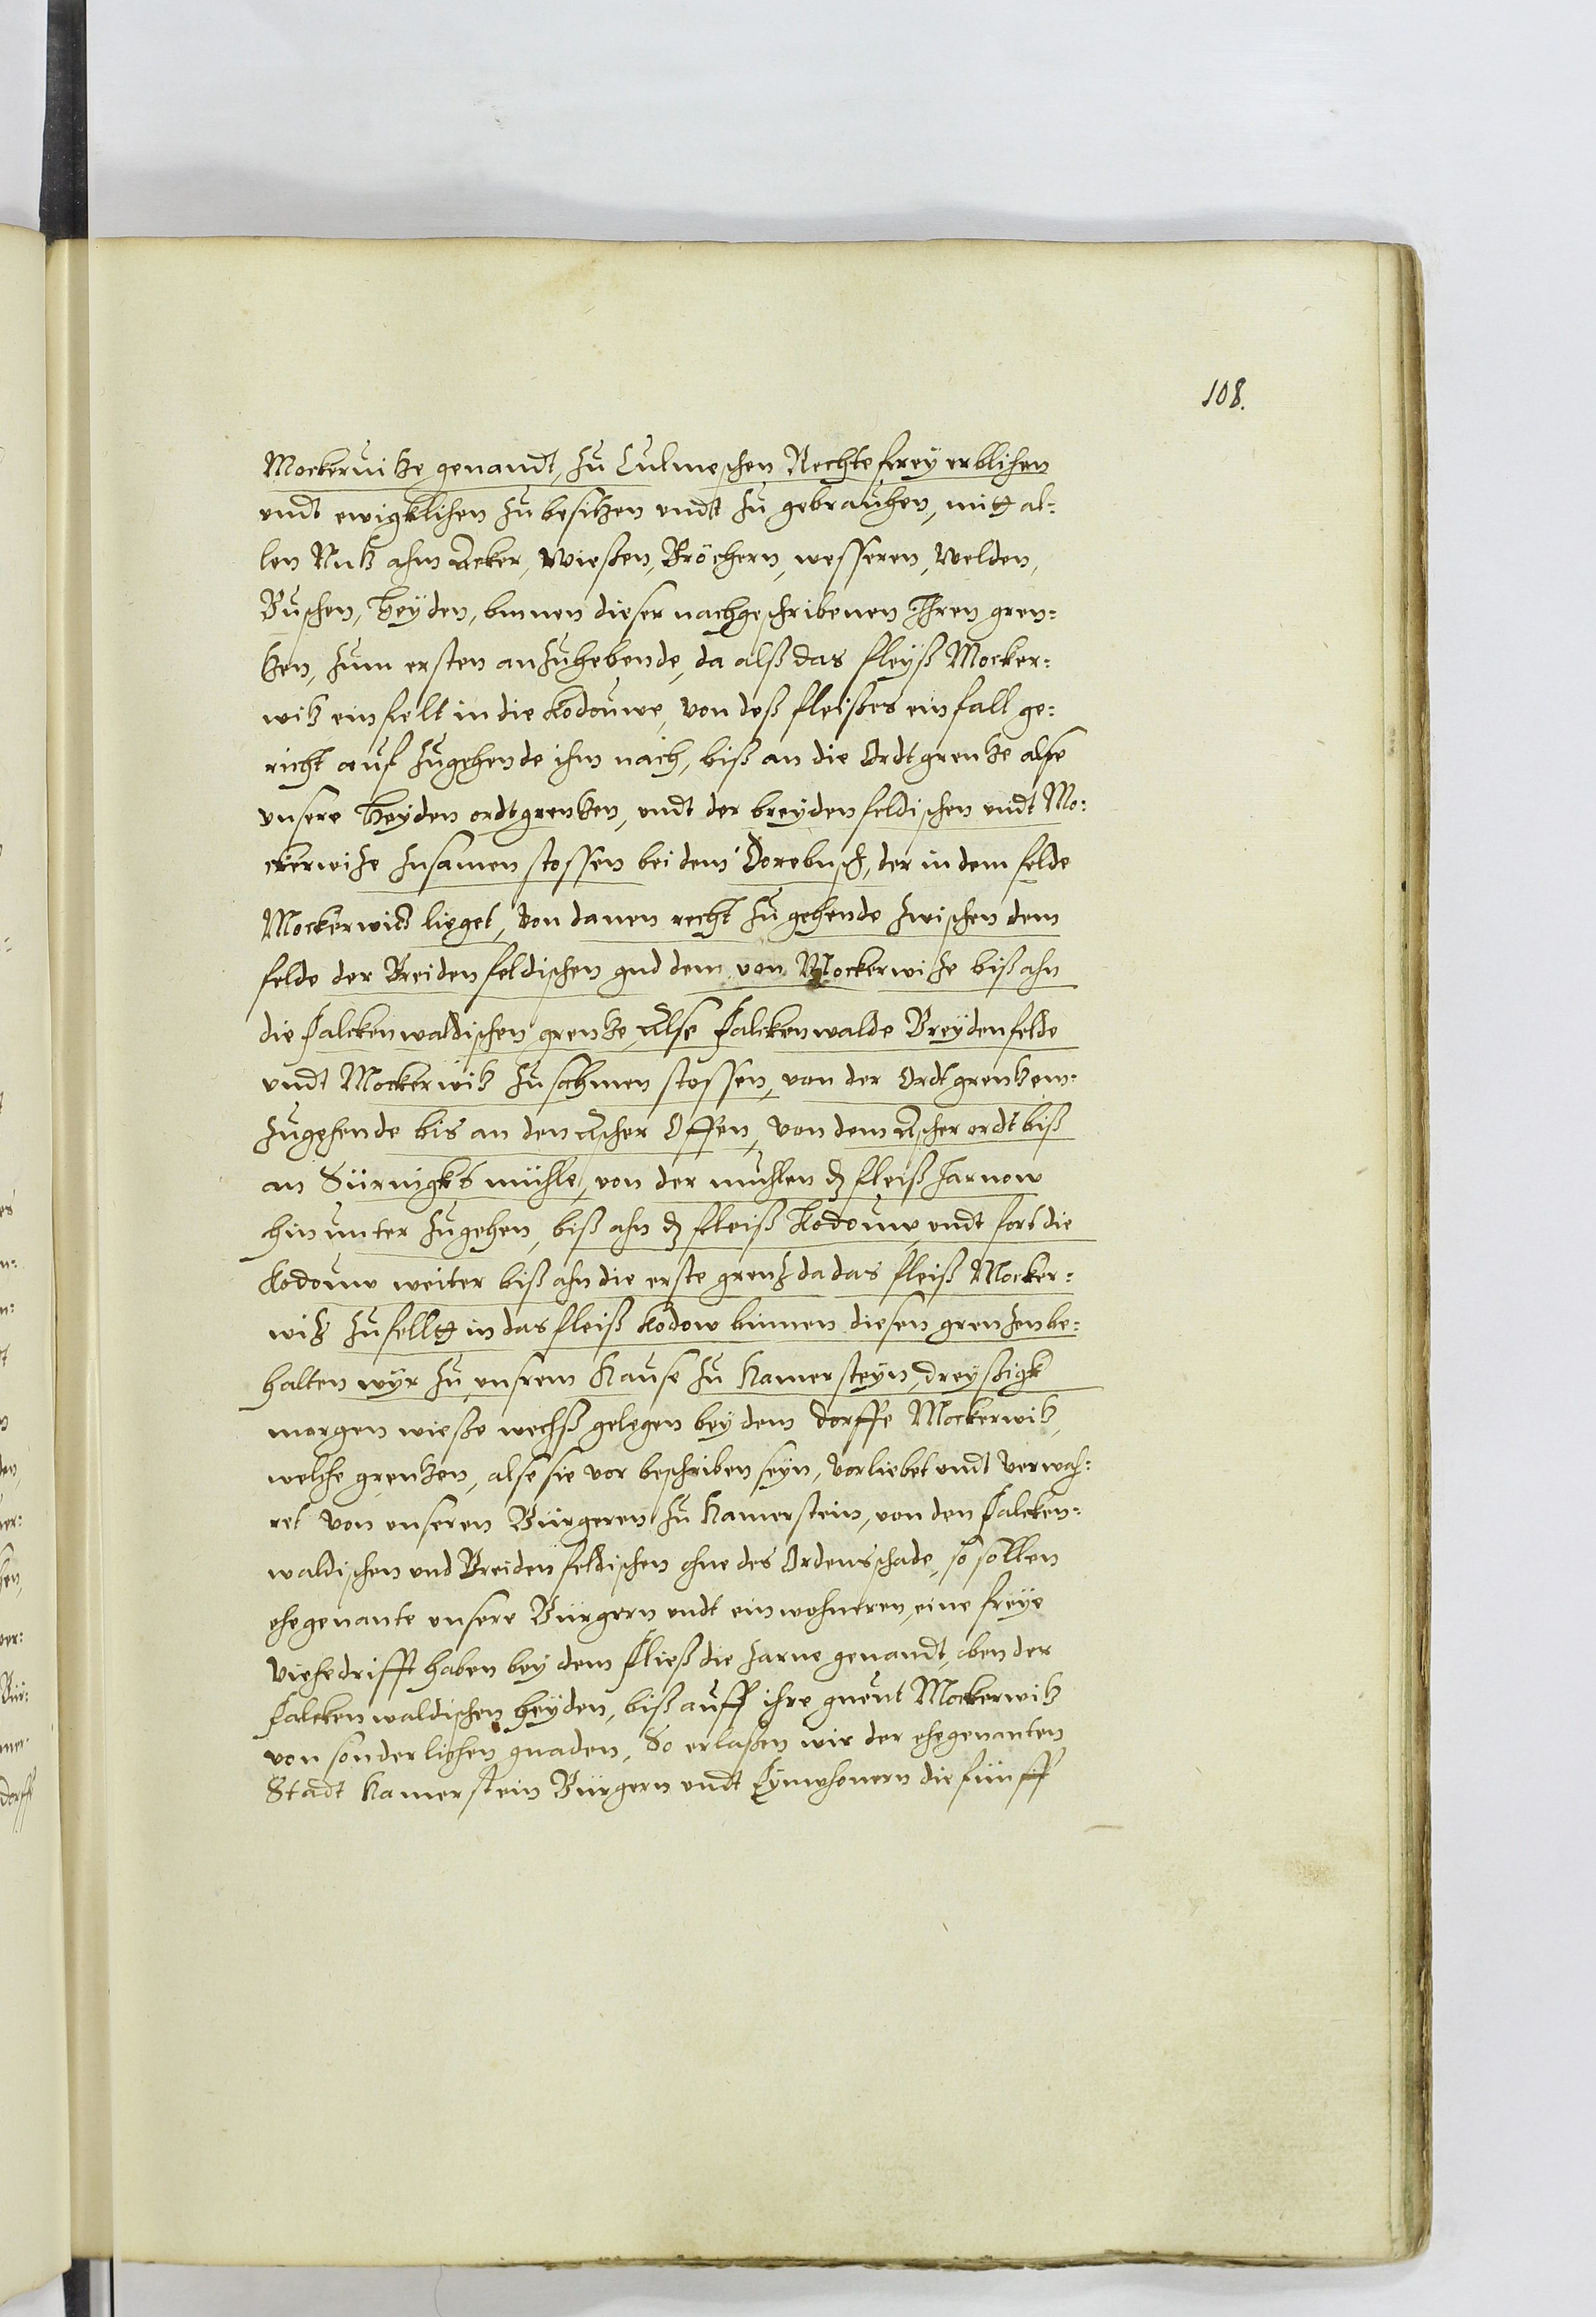 108.
Mockeruitze genandt, zu Culmeschen Rechte frey erblichen
undt ewigklichen zu besitzen undt zu gebrauchen, mitt al=
len Nutz ahm Acker, Wießen, Bröchern, wesseren, Welden,
Buschen, Heyden, binnen dieser nachgeschribenen Ihren gren=
tzen, zum ersten anzuhebende, da alß das fleyß Mocker=
witz einfielt in die Kodouwe, von deß fleißes einfall ge=
richt auf zugehende ihm nach, biß an die Ordtgrentze alse
unsere Heyden ordtgrentzen, undt der breydenfeldischen undt Mo=
ckerwize zusamen stossen bei dem Dorebusch, der in dem felde
Mockerwitz lieget, Von danen recht zu gehende zwischen dem
felde der Breidenfeldischen und dem von Mockerwize biß ahn
die Falckenwaldischen grentze, Alse Falckenwalde Breydenfelde
undt Mockerwitz zusahmen stossen, von der Ordtgrentzem=
zugehende bis an den Ascher Offen, Von dem Ascher ordt biß
an Sürnigks mühle, von der muhlen dz fleiß Zarnow
hinunter zugehen, biß ahn dz fleiß Kodouw, undt fort die
Kodouw weiter biß ahn die erste grenz da das fleiß Mocker=
witz zufellt in das fleiß Kodow binnen diesen grenzen be=
halten wyr zu unsrem Hause zu Hamersteyn, dreyßigk
morgen wieße wechß gelegen bey dem dorffe Mockerwitz,
welche grentzen, alse sie vor beschriben seyn, Vorliebet undt Verwah=
ret Von unseren Bürgeren zu Hamerstein, von den Falcken=
waldischen und Breidenfeldischen ohne des Ordens schade, so sollen
ehegenante unsere Bürgern undt einwohneren, eine freye
Viehedrifft haben bey dem Fließ die Zarne genandt, oben der
Falckenwaldischen heyden, biß auff ihre gneut Mockerwitz
von sonderlichen gnaden, So erlaßen wir der ehegenanten
Stadt Hamerstein Bürgern undt Eynwhonern die fünff